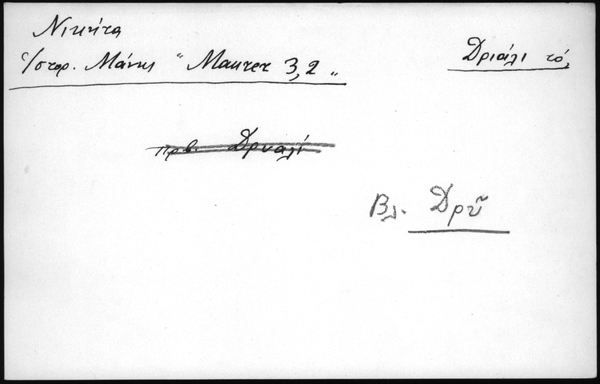 Νικήτα
Ἱστορ. Μάνης "Maurer 3,2"
Δριάλι τό,
πρβ. Δρυαλί
Βλ. Δρῦ